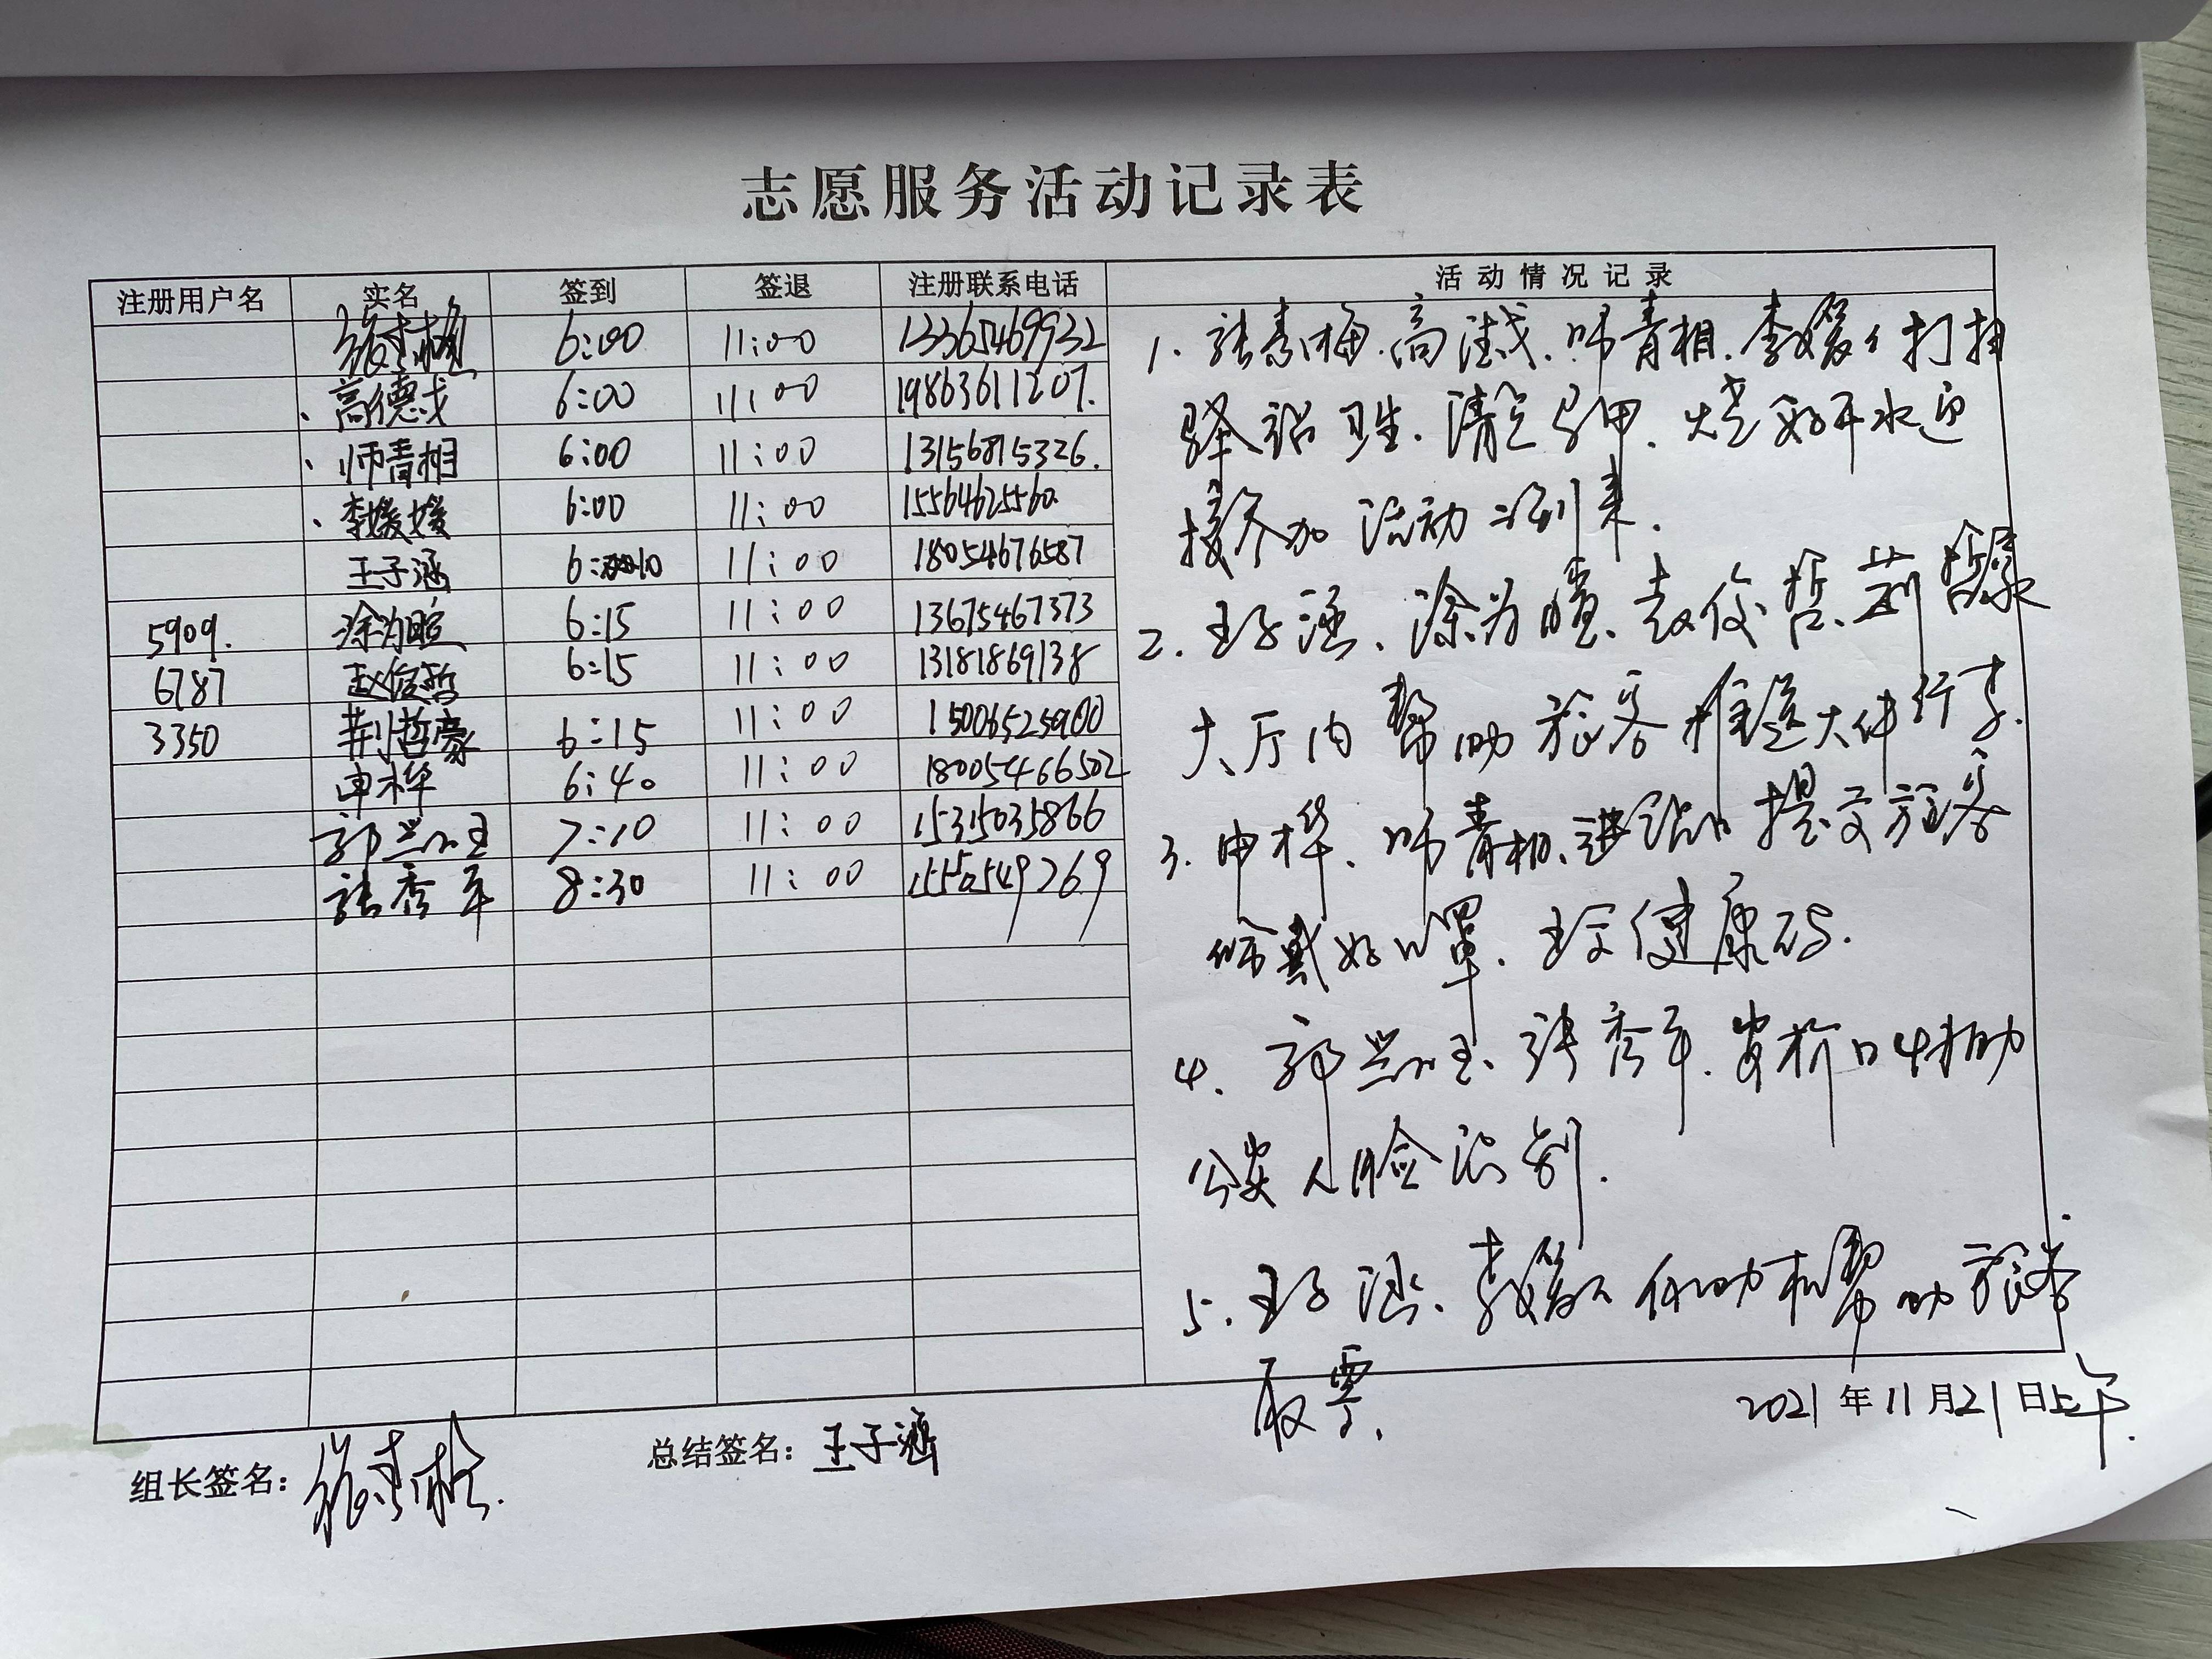 志愿服务活动记录表
注册用户名 实名 签到 签退 注册联系电话 活动情况记录
张素梅 6:00 11:00 13365469932
高德戌 6:00 11:00 19863611207.
师青相 6:00 11:00 13156815326.
李媛媛 6:00 11:00 15564625560
王子涵 6:10 11:00 18054676587
5909. 涂为暄 6:15 11:00 13675467373
6787 赵俊哲 6:15 11:00 13181869138
3350 荆哲豪 6:15 11:00 15006525900
申桦 6:40 11:00 18005466502
郭兴玉 7:10 11:00 15315035866
张秀平 8:30 11:00 15550549269
1. 张素梅、高德戌、师青相、李媛媛打扫
驿站卫生、清点马甲、烧好开水迎
接参加活动
2. 王子涵、涂为暄、赵俊哲、荆哲豪
大厅内帮助旅客推送大件行李.
3. 申桦、师青相、进站口提交旅客
戴好口罩、健康码.
4. 郭兴玉、张秀平、安检口协助
公安人脸识别.
5. 王子涵、李媛媛 帮助旅客
取票.
2021年11月21日上午.
组长签名: 张素梅.
总结签名: 王子涵